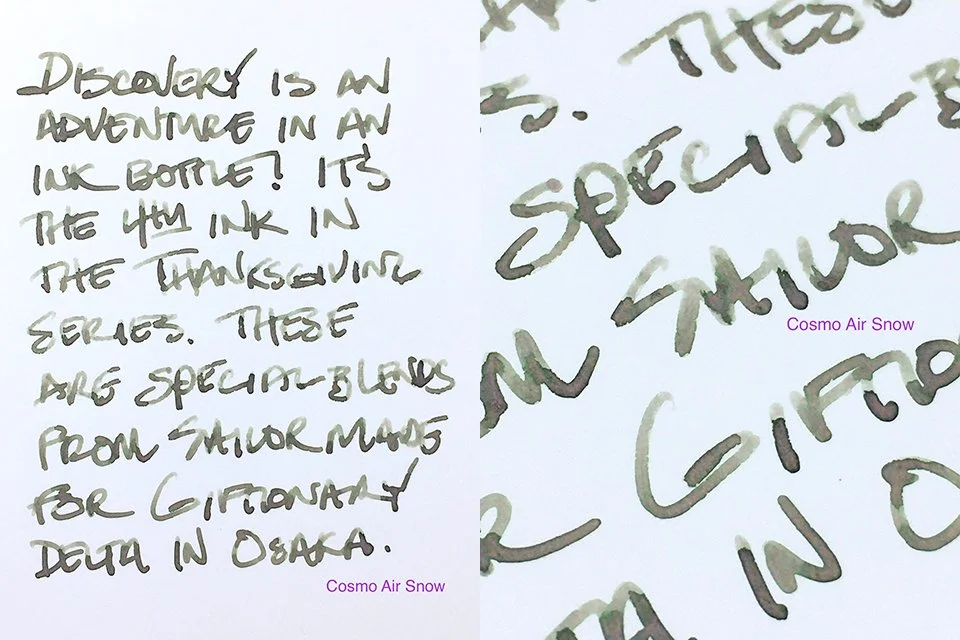 DISCOVERY IS AN
ADVENTURE IN AN
INK BOTTLE! IT'S
THE 4TH INK IN
THE THANKSGIVING
SERIES. THESE
ARE SPECIAL BLENDS
FROM SAILOR MADE
FOR GIFTIONARY
DELTA IN OSAKA.
Cosmo Air Snow
THESE
S. 
SPECIAL B
M SAILOR
Cosmo Air Snow
R GIFTIO
TA IN O